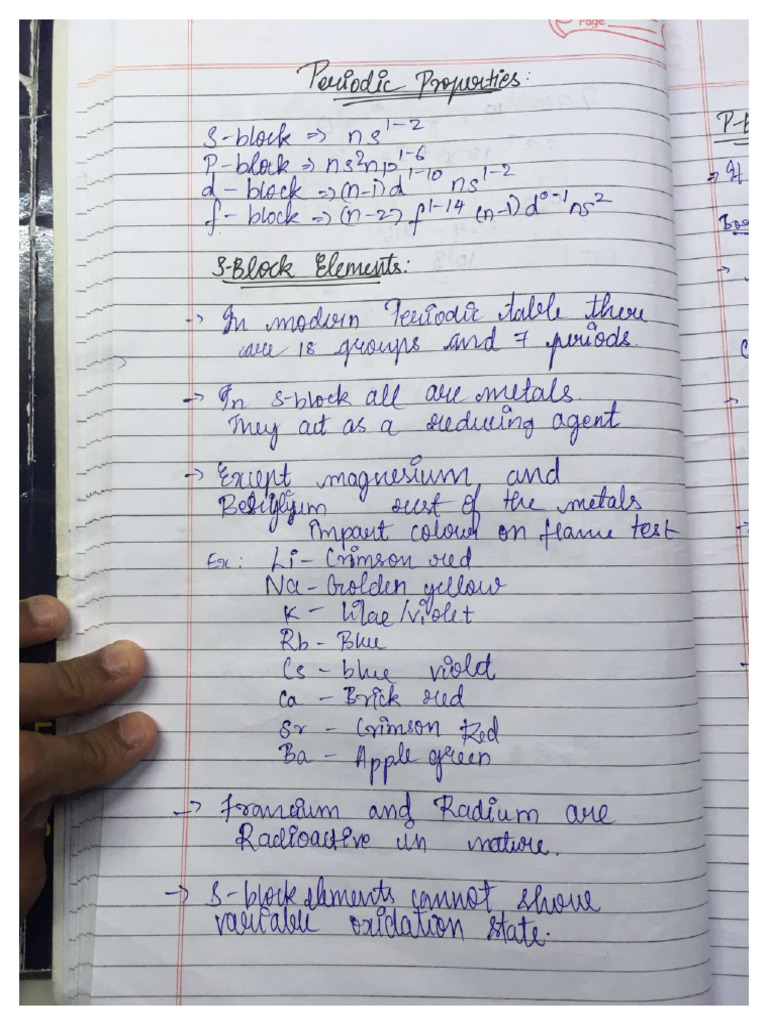 Page
Periodic Properties:
S-block => ns^1-2
P-block => ns^2np^1-6
d-block => (n-1)d^1-10 ns^1-2
f-block => (n-2) f^1-14 (n-1)d^0-1 ns^2
S-Block Elements:
-> In modern Periodic table there
are 18 groups and 7 periods.
-> In s-block all are metals.
They act as a reducing agent
-> Except magnesium and
rest of the metals
impart colour on flame test
Ex: Li - Crimson red
Na - Golden yellow
K - lilac/violet
Rb - Blue
Cs - blue violet
Ca - Brick red
Sr - Crimson Red
Ba - Apple green
-> Francium and Radium are
Radioactive in nature.
-> S-block elements cannot show
variable oxidation state.